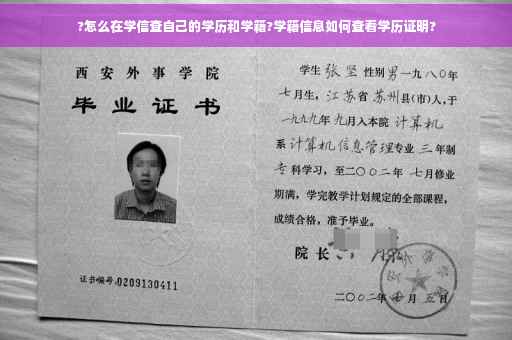 ?怎么在学信查自己的学历和学籍?学籍信息如何查看学历证明?
西安外事学院
毕业证书
证书编号:0209130411
学生 张坚 性别男 一九八〇年
七月生，江苏省 苏州县(市)人，于
一九九九年 九月入本院 计算机
系 计算机信息管理专业 三 年制
专 科学习，至二〇〇二年 七月修业
期满，学完教学计划规定的全部课程，
成绩合格，准予毕业。
院 长
二〇〇二年 月 五日